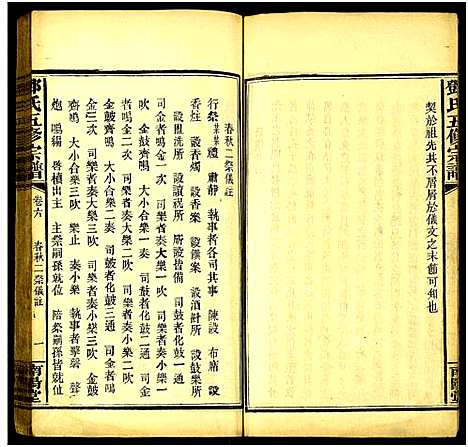 鄧氏五修宗譜
契於祖先共不屑屑於儀文之末節可知也
南陽堂
春秋二祭儀註
行祭某某禮　肅靜　執事者各司其事　陳設　布席　設
香炷　設香燭　設香案　設饌案　設酒尊所　設鼓樂所
設盥洗所　設讀祝所　所設皆備　司鼓者化鼓三通　金
吹　金鼓齊鳴　大小合樂二吹　司鼓者化鼓二通　司樂
者鳴金二次　司樂者奏大樂二吹　司樂者奏小樂二吹
金三次　司樂者奏大樂三吹　司樂者奏小樂三吹　金鼓
齊鳴　大小合樂三吹　樂止　奏小樂　執事者擊磬　聲
炮　鳴鐲　啓櫝出主　主祭嗣孫就位　陪祭嗣孫皆就位
鄧氏五修宗譜
卷六　春秋二祭儀註
一
南陽堂